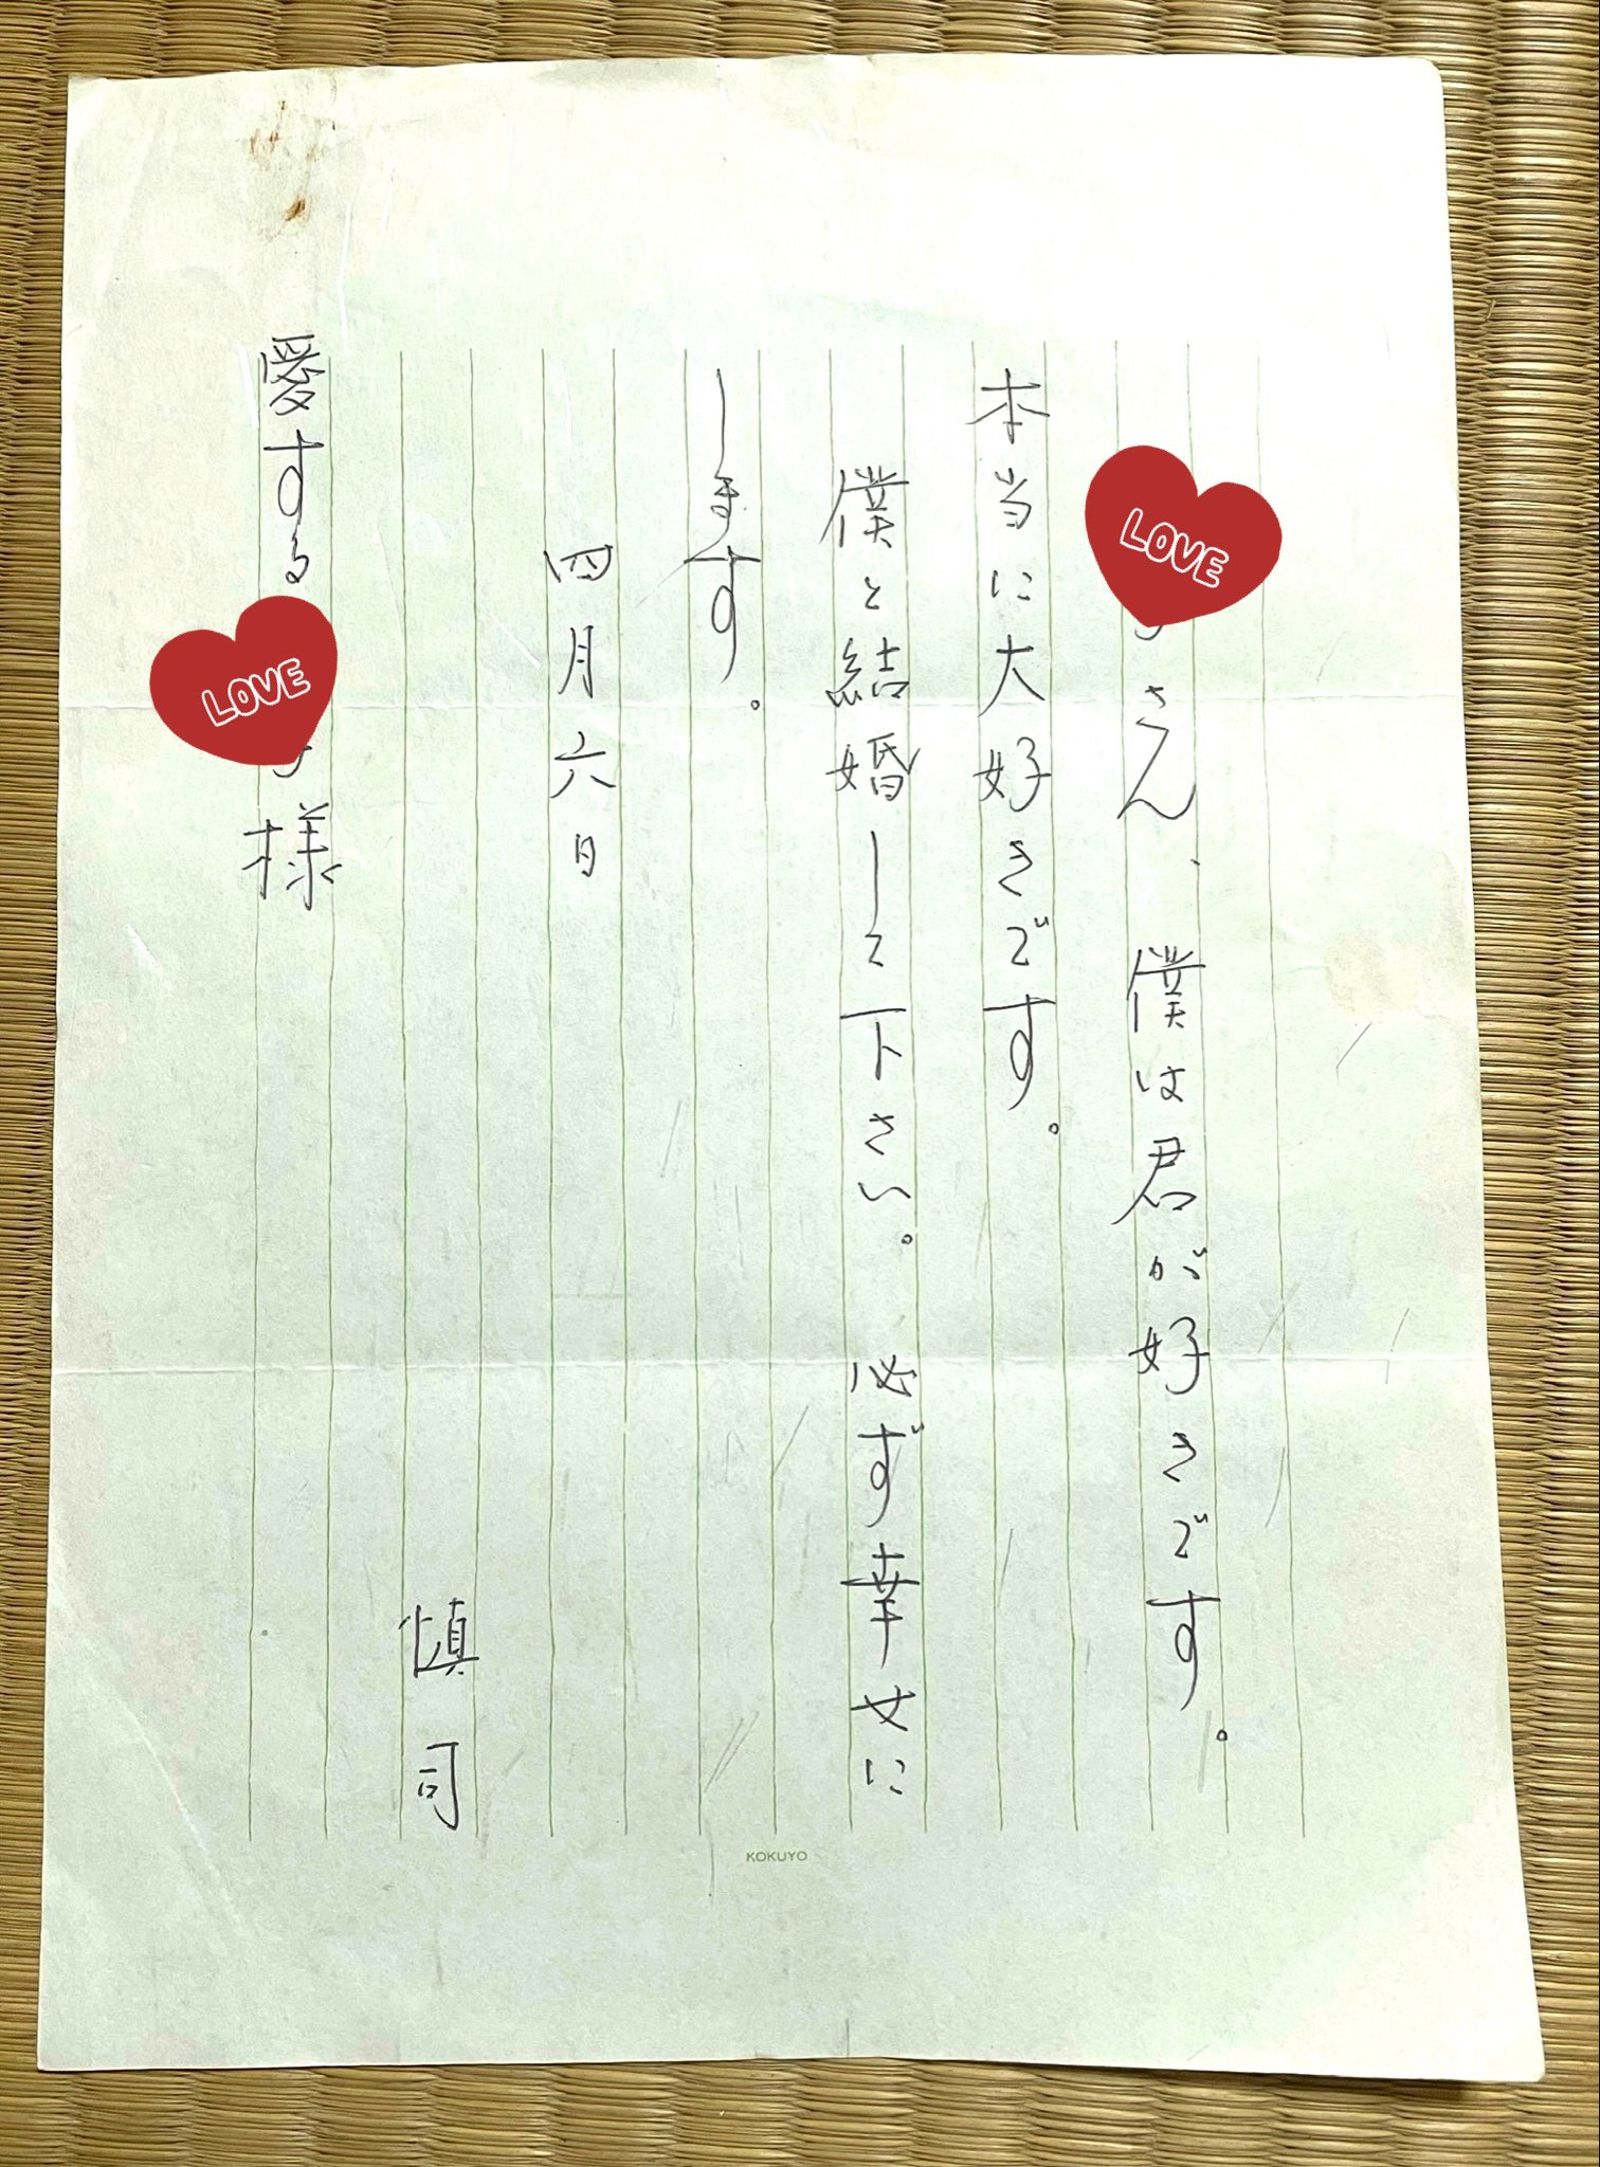 LOVE さん、僕は君が好きです。
本当に大好きです。
僕と結婚して下さい。必ず幸せに
します。
四月六日
慎司
愛する LOVE 様
KOKUYO